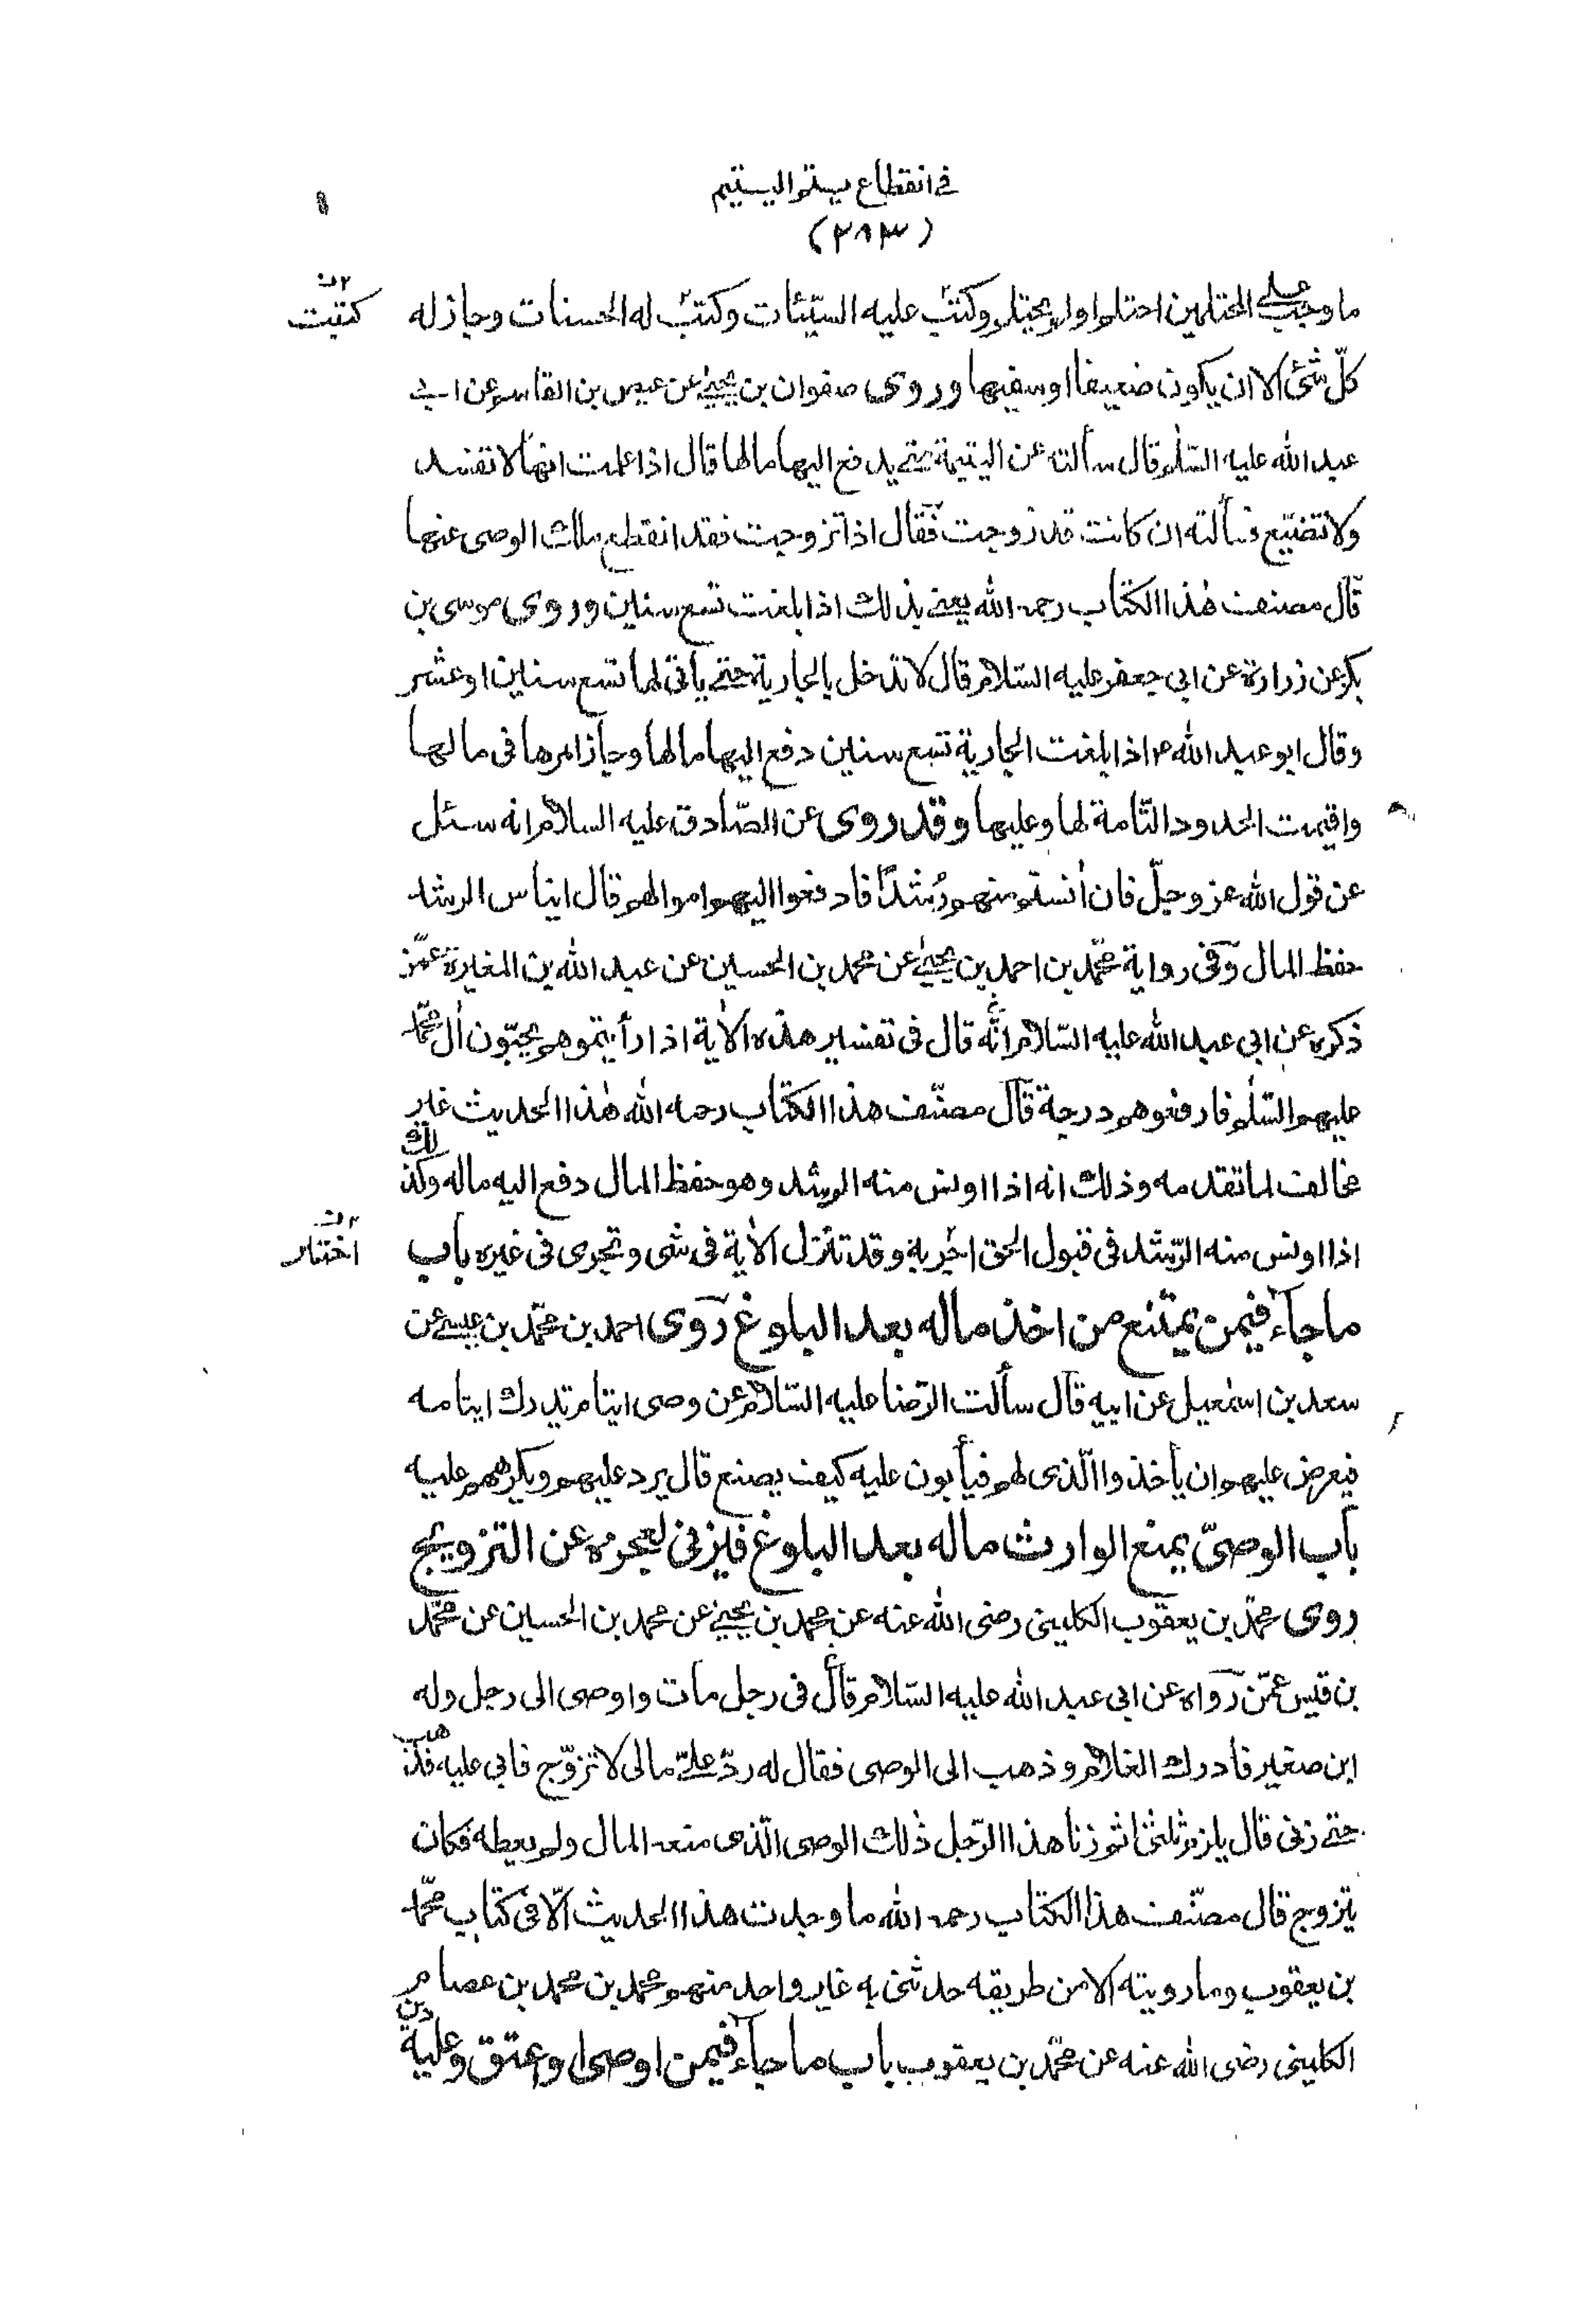 فى انقطاع يتم اليتيم
(٢٨٣)
ما وجب على المحتلمين احتلم او لم يحتلم وكتب عليه السيّئات وكتب له الحسنات وجاز له
كتبت
كلّ شئ الا ان يكون ضعيفا او سفيها وروى صفوان بن يحيى عن عيص بن القاسم عن ابى
عبد الله عليه السّلم قال سألته عن اليتيمة متى يدفع اليها مالها قال اذا علمت انها لا تفسد
ولا تضيّع فسألته ان كانت قد زوجت فقال اذا تزوجت فقد انقطع ملك الوصى عنها
قال مصنف هذا الكتاب رحمه الله يعنى بذلك اذا بلغت تسع سنين وروى موسى بن
بكر عن زرارة عن ابى جعفر عليه السّلام قال لا تدخل بالجارية حتى يأتى لها تسع سنين او عشر
وقال ابو عبد الله ع اذا بلغت الجارية تسع سنين دفع اليها مالها وجاز امرها فى مالها
واقيمت الحدود التّامة لها وعليها وقد روى عن الصّادق عليه السلام انه سئل
عن قول الله عز وجلّ فان انستم منهم رُشداً فادفعوا اليهم اموالهم قال ايناس الرشد
حفظ المال وفى رواية محمّد بن احمد بن يحيى عن محمد بن الحسين عن عبد الله بن المغيرة عمّن
ذكره عن ابى عبد الله عليه السّلام انّه قال فى تفسير هذه الاية اذا رأيتموهم يحبّون ال محمّد
عليهم السّلم فارفعوهم درجة قال مصنّف هذا الكتاب رحمه الله هذا الحديث غير
مخالف لما تقدمه وذلك انه اذا اونس منه الرشد وهو حفظ المال دفع اليه ماله وكذلك
اذا اونس منه الرّشد فى قبول الحق اختبر به وقد تنزل الاية فى شى وتجرى فى غيره باب
اختبار
ما جاء فيمن يمتنع من اخذ ماله بعد البلوغ روى احمد بن محمّد بن عيسى عن
سعد بن اسمعيل عن ابيه قال سألت الرّضا عليه السّلام عن وصى ايتام تدرك ايتامه
فيعرض عليهم ان يأخذوا الّذى لهم فيأبون عليه كيف يصنع قال يرد عليهم ويكرههم عليه
باب الوصىّ يمنع الوارث ماله بعد البلوغ فيزنى لعجزه عن التزويج
روى محمّد بن يعقوب الكلينى رضى الله عنه عن محمد بن يحيى عن محمد بن الحسين عن محمّد
بن قيس عمّن رواه عن ابى عبد الله عليه السّلام قال فى رجل مات واوصى الى رجل وله
ابن صغير فادرك الغلام وذهب الى الوصى فقال له ردّ علىّ مالى لاتزوّج فابى عليه فذهب
حتى زنى قال يلزم ثلثى اثم زنا هذا الرّجل ذلك الوصى الّذى منعه المال ولم يعطه فكان
يتزوج قال مصنّف هذا الكتاب رحمه الله ما وجدت هذا الحديث الّا فى كتاب محمّد
بن يعقوب وما رويته الا من طريقه حدثنى به غير واحد منهم محمد بن محمد بن عصام
الكلينى رضى الله عنه عن محمّد بن يعقوب باب ما جاء فيمن اوصى او اعتق وعليه دين